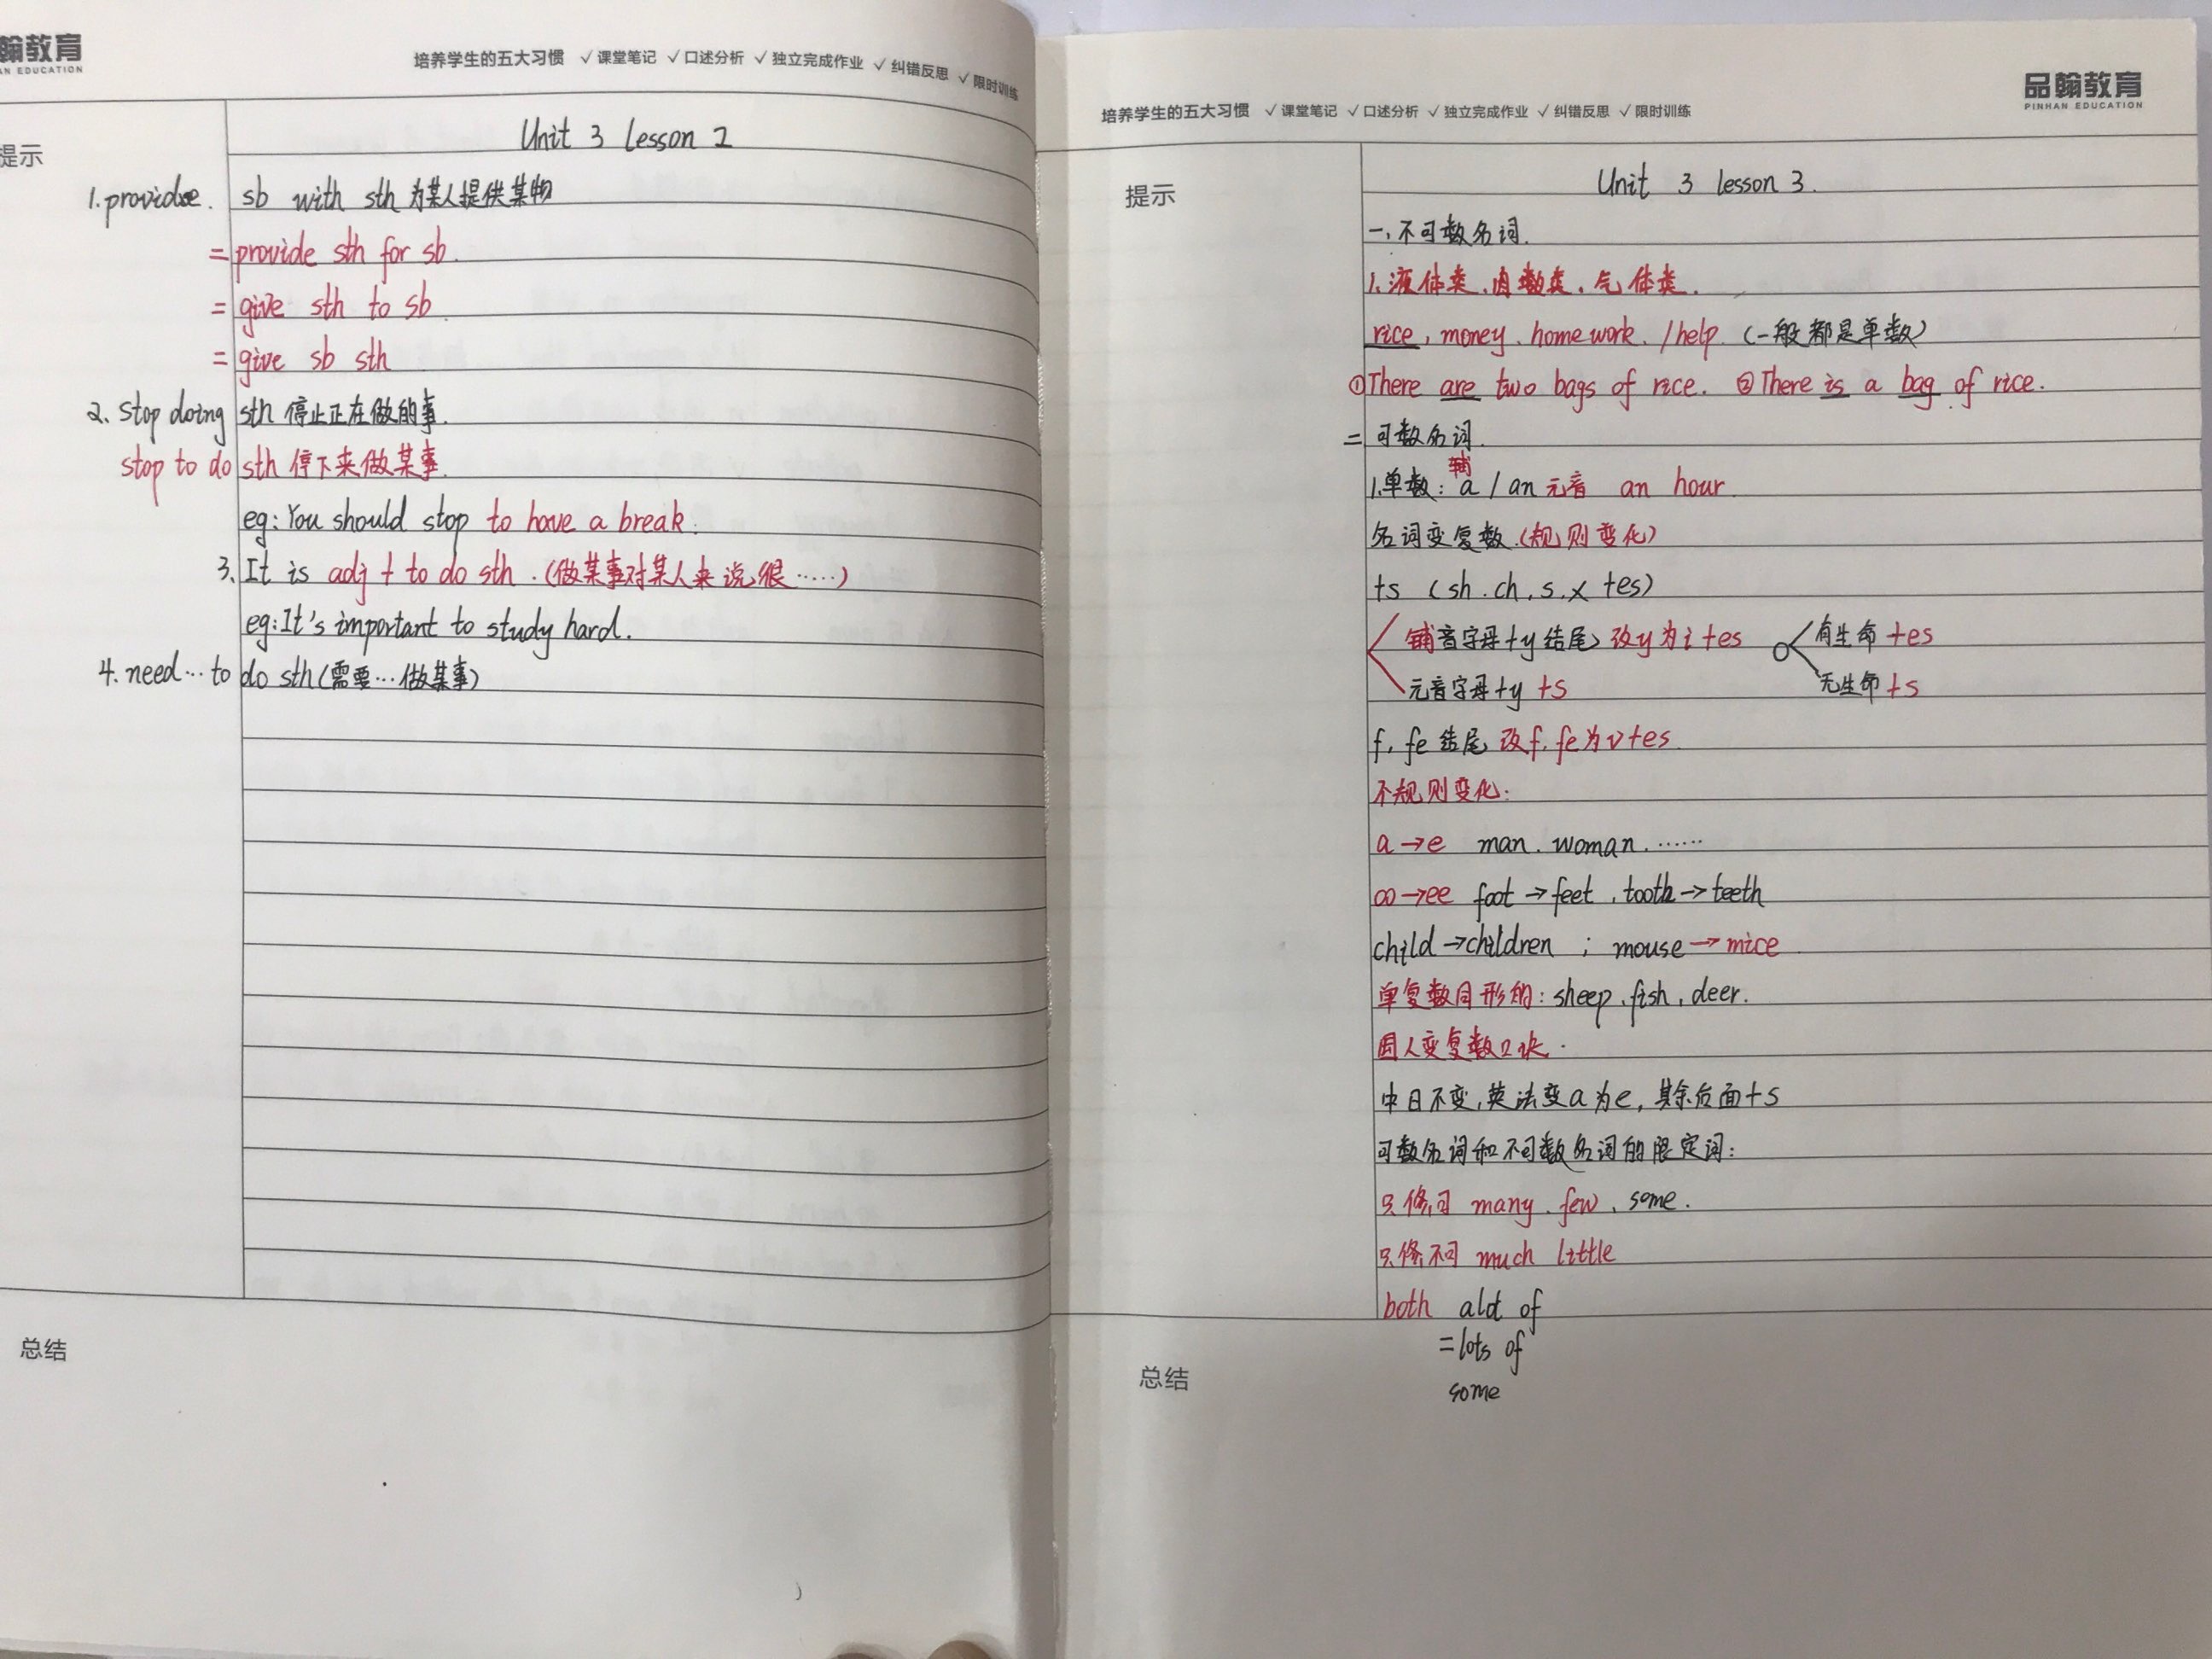 翰教育
AN EDUCATION
培养学生的五大习惯 √课堂笔记 √口述分析 √独立完成作业 √纠错反思 √限时训练
提示
Unit 3 lesson 2
1. provide. sb with sth 为某人提供某物
= provide sth for sb.
= give sth to sb.
= give sb sth
2. stop doing sth 停止正在做的事.
stop to do sth 停下来做某事.
eg: You should stop to have a break.
3. It is adj + to do sth. (做某事对某人来说很……)
eg: It's important to study hard.
4. need… to do sth (需要…做某事)
总结
培养学生的五大习惯 √课堂笔记 √口述分析 √独立完成作业 √纠错反思 √限时训练
品翰教育
PINHAN EDUCATION
提示
Unit 3 lesson 3.
一、不可数名词.
1. 液体类、肉类、气体类.
rice, money、homework. /help (一般都是单数)
①There are two bags of rice. ②There is a bag of rice.
二 可数名词.
辅
1.单数: a / an 元音 an hour.
名词变复数.(规则变化)
+s (sh. ch. s. x +es)
辅音字母+y结尾) 改y为i+es o 有生命+es
元音字母+y +s 无生命+s
f, fe 结尾 改f, fe为v+es.
不规则变化:
a→e man. woman. ……
oo→ee foot→feet, tooth→teeth
child→children ; mouse→mice
单复数同形的: sheep, fish, deer.
国人变复数口诀.
中日不变,英法变a为e, 其余后面+s
可数名词和不可数名词的限定词:
只修可 many. few、some.
只修不可 much little
both alot of
= lots of
some
总结